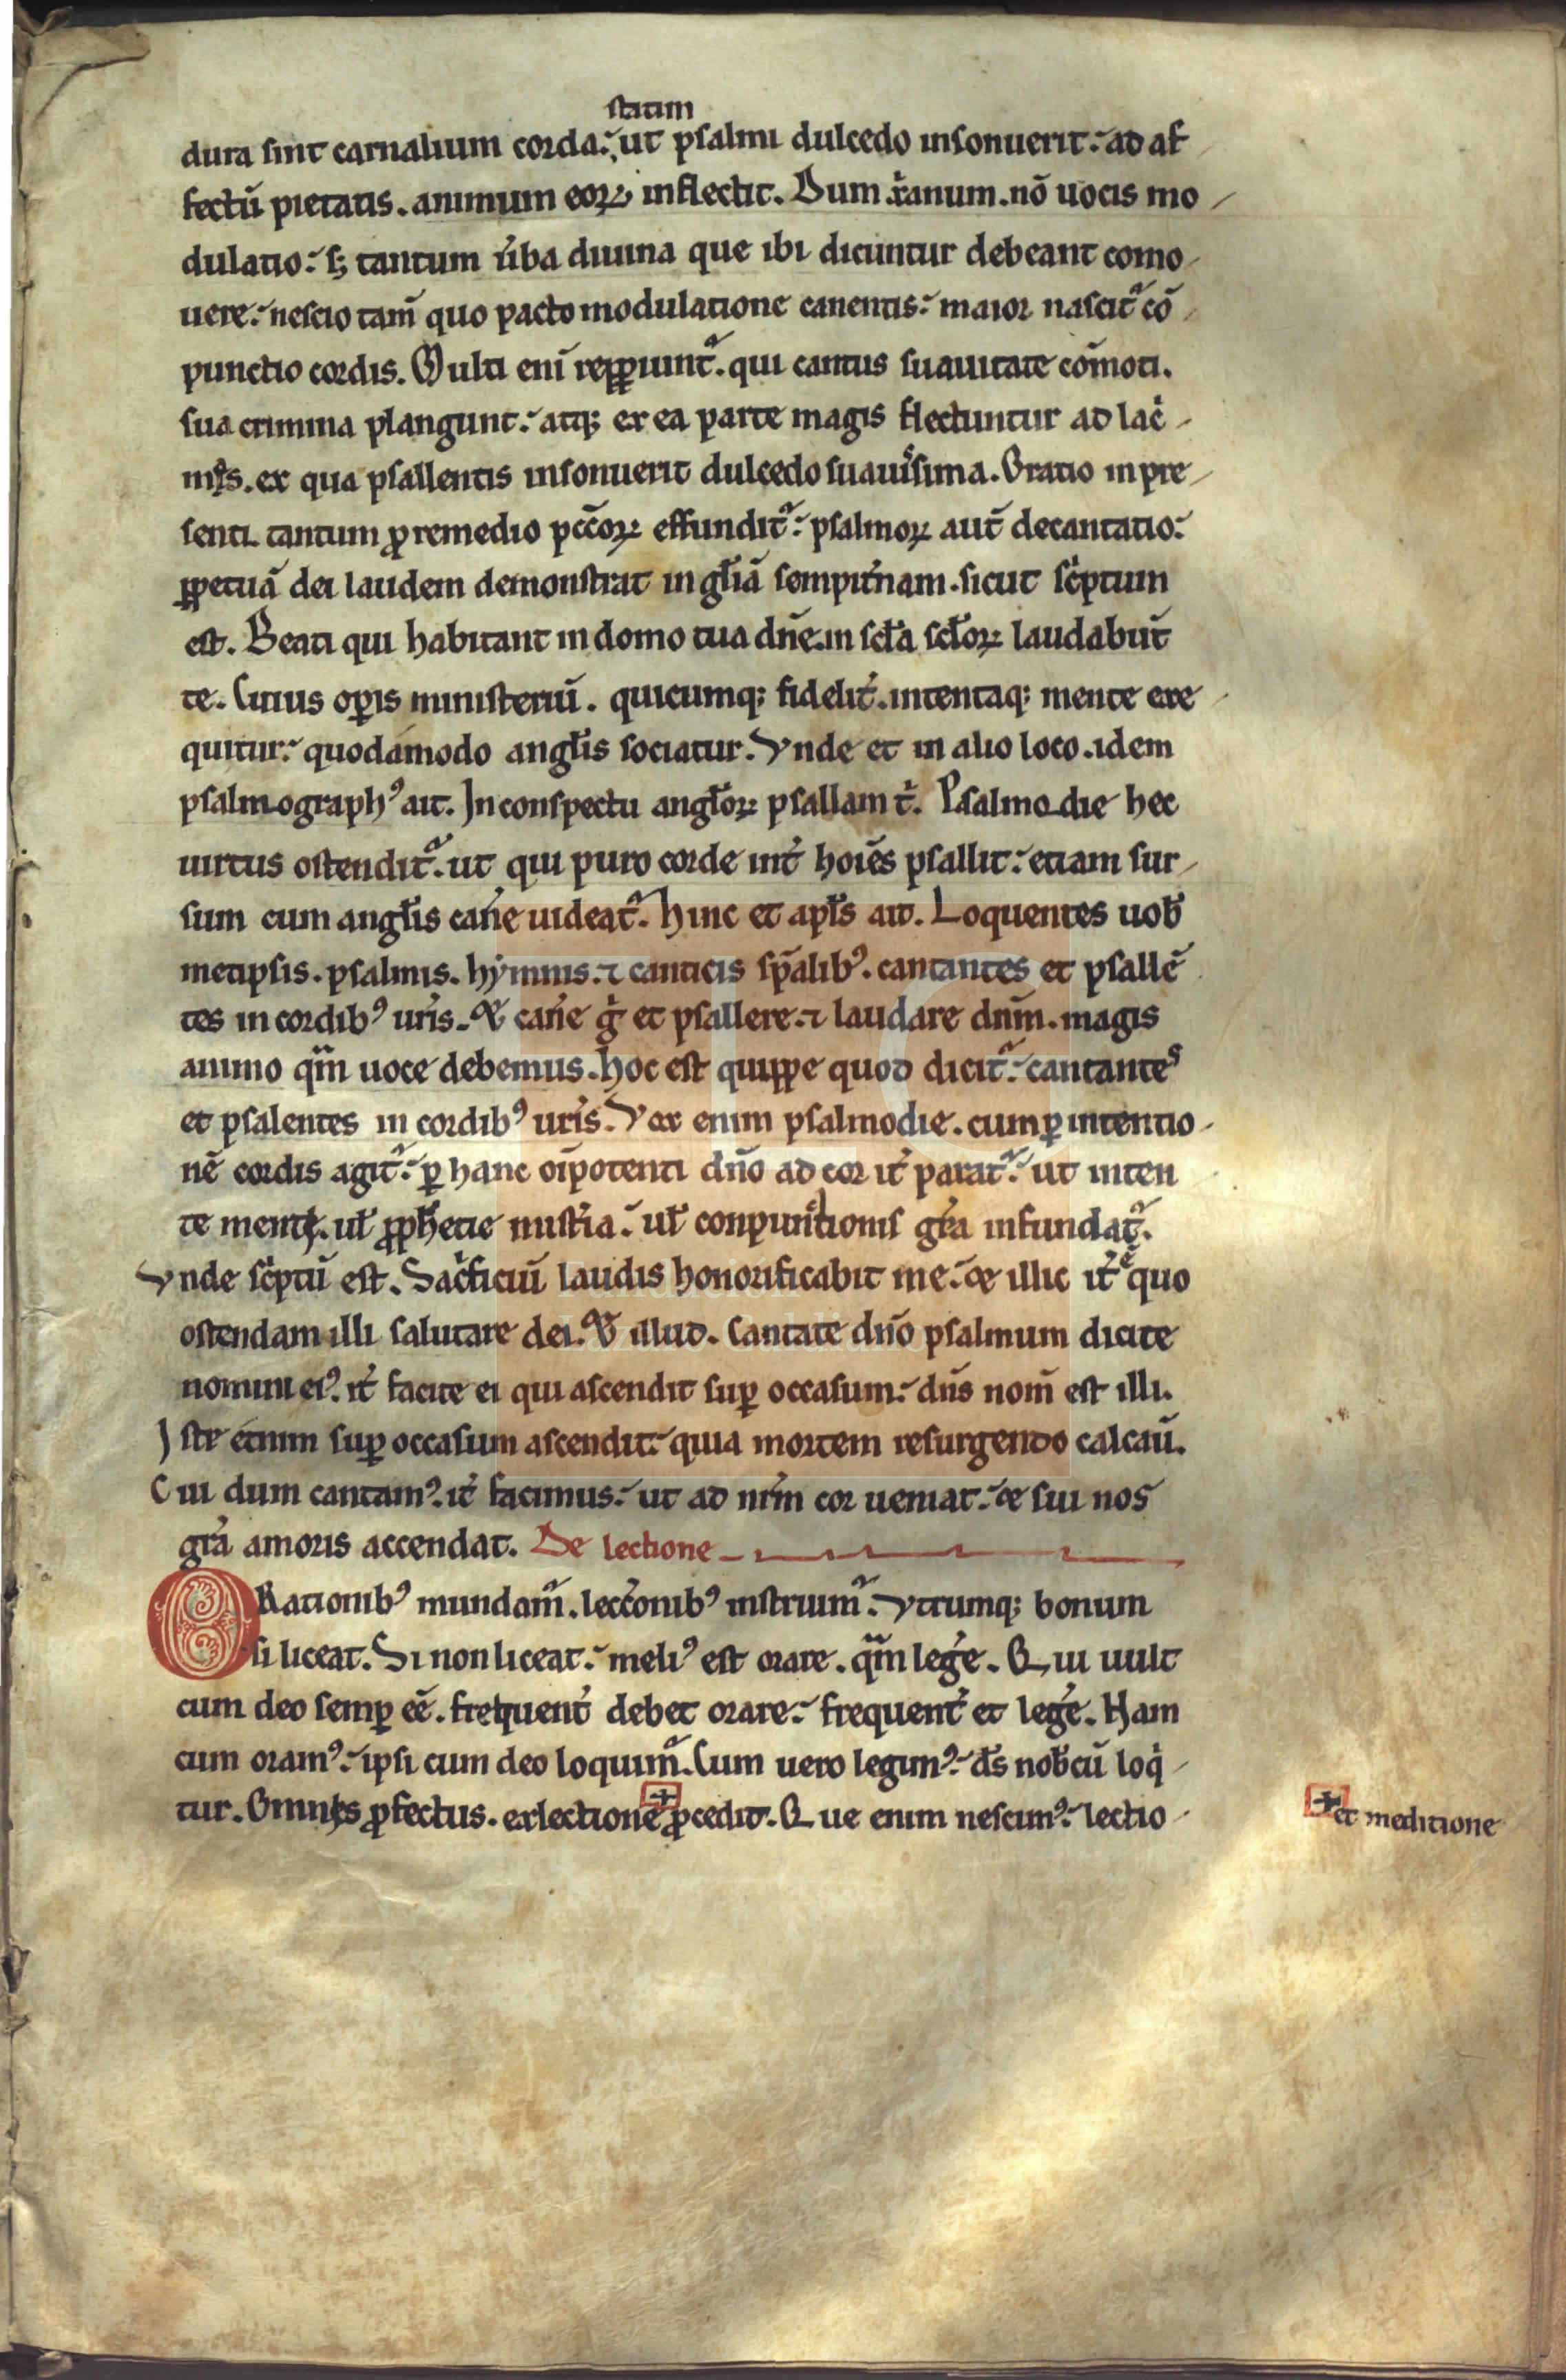 statim
dura sint carnalium corda. ut psalmi dulcedo insonuerit. ad af
fectũ pietatis. animum eoꝝ inflectit. Dum x̄anum. nõ uocis mo
dulatio. sꝫ tantum ũba diuina que ibi dicuntur debeant como
uere. nescio tam̃ quo pacto modulatione canentis. maior nascit᷑ cõ
punctio cordis. Multi enĩ repꝑiunt᷑. qui cantus suauitate com̃oti.
sua crimina plangunt. atqꝫ ex ea parte magis flectuntur ad lac
mis. ex qua psallentis insonuerit dulcedo suauissima. Oratio in pre
senti tantum ꝓ remedio pcc̃oꝝ effundit᷑. psalmoꝝ aut̃ decantatio.
ꝑpetuã dei laudem demonstrat in gl̃iã sempit̃nam. sicut sc̃ptum
est. Beati qui habitant in domo tua dñe. in sc̃la sc̃loꝝ laudabũt
te. Cuius oꝑis ministeriũ. quicumqꝫ fidelit̃. intentaqꝫ mente exe
quitur. quodãmodo angl̃is sociatur. Vnde et in alio loco. idem
psalmographꝰ ait. In conspectu angl̃oꝝ psallam t̃. Psalmodie hec
uirtus ostendit᷑. ut qui puro corde int̃ hoiẽs psallit. etiam sur
sum cum angl̃is cañe uideat᷑. Hinc et apl̃s ait. Loquentes uob̃
metipsis. psalmis. hymnis. ⁊ canticis sp̃alibꝰ. cantantes et psallẽ
tes in cordibꝰ ur̃is. Qđ cañe g̃ et psallere. ⁊ laudare dñm. magis
animo qm̃ uoce debemus. hoc est quippe quod dicit᷑. cantantes
et psalentes in cordibꝰ ur̃is. Vox enim psalmodie. cum ꝑ intentio
nẽ cordis agit᷑. ꝑ hanc oĩpotenti dño ad cor it̃ parat᷑. ut inten
te menti. ul̃ ꝓph̃etie mist̃ia. ul̃ conpunctionis gr̃a infundat᷑.
Vnde sc̃ptũ est. Sac̃ficiũ laudis honorificabit me. & illic it̃ e quo
ostendam illi salutare dei. Qđ illud. Cantate dño psalmum dicite
nomini eiꝰ. it̃ facite ei qui ascendit suꝑ occasum. dñs nom̃ est illi.
Iste etnim suꝑ occasum ascendit. quia mortem resurgendo calcaũ.
Cui dum cantamꝰ. it̃ facimus. ut ad nr̃m cor ueniat. & sui nos
gr̃a amoris accendat. De lectione
ORationibꝰ mundam᷑. lecc̃onibꝰ instruim᷑. Vtrumqꝫ bonum
si liceat. Si non liceat. meliꝰ est orare. qm̃ leg̃e. Qui uult
cum deo semꝑ eẽ. frequent̃ debet orare. frequent̃ et leg̃e. Nam
cum oramꝰ. ipsi cum deo loquim᷑. Cum uero legimꝰ. ds̃ nob̃cũ loq
tur. Omnis ꝓfectus. ex lectione ꝓcedit. Que enim nescimꝰ. lectio
+ et meditione